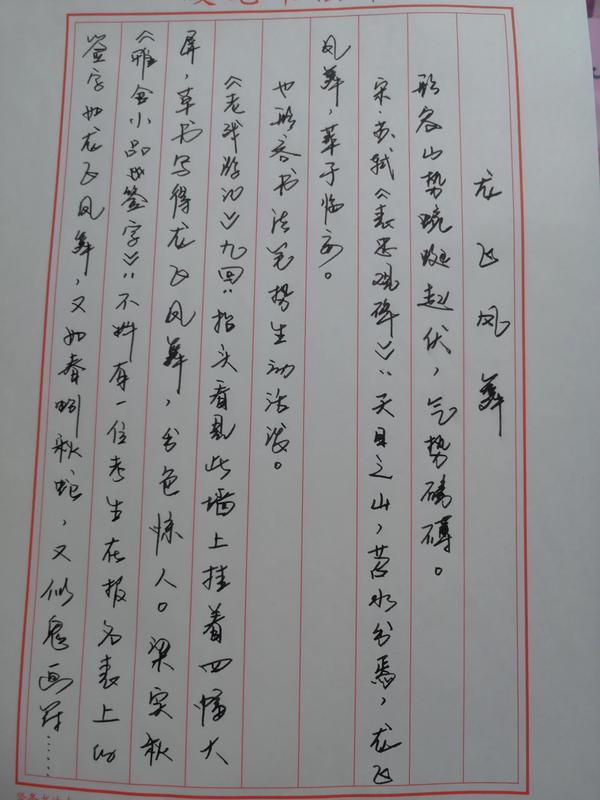 龙飞凤舞
形容山势蜿蜒起伏，气势磅礴。
宋·苏轼《表忠观碑》：天目之山，苕水出焉，龙飞
凤舞，萃于临安。
也形容书法笔势生动活泼。
《老残游记》九回：抬头看见北墙上挂着四幅大
屏，草书写得龙飞凤舞，出色惊人。梁实秋
《雅舍小品·签字》：不料有一位考生在报名表上的
签字如龙飞凤舞，又如春蚓秋蛇，又似鬼画符……